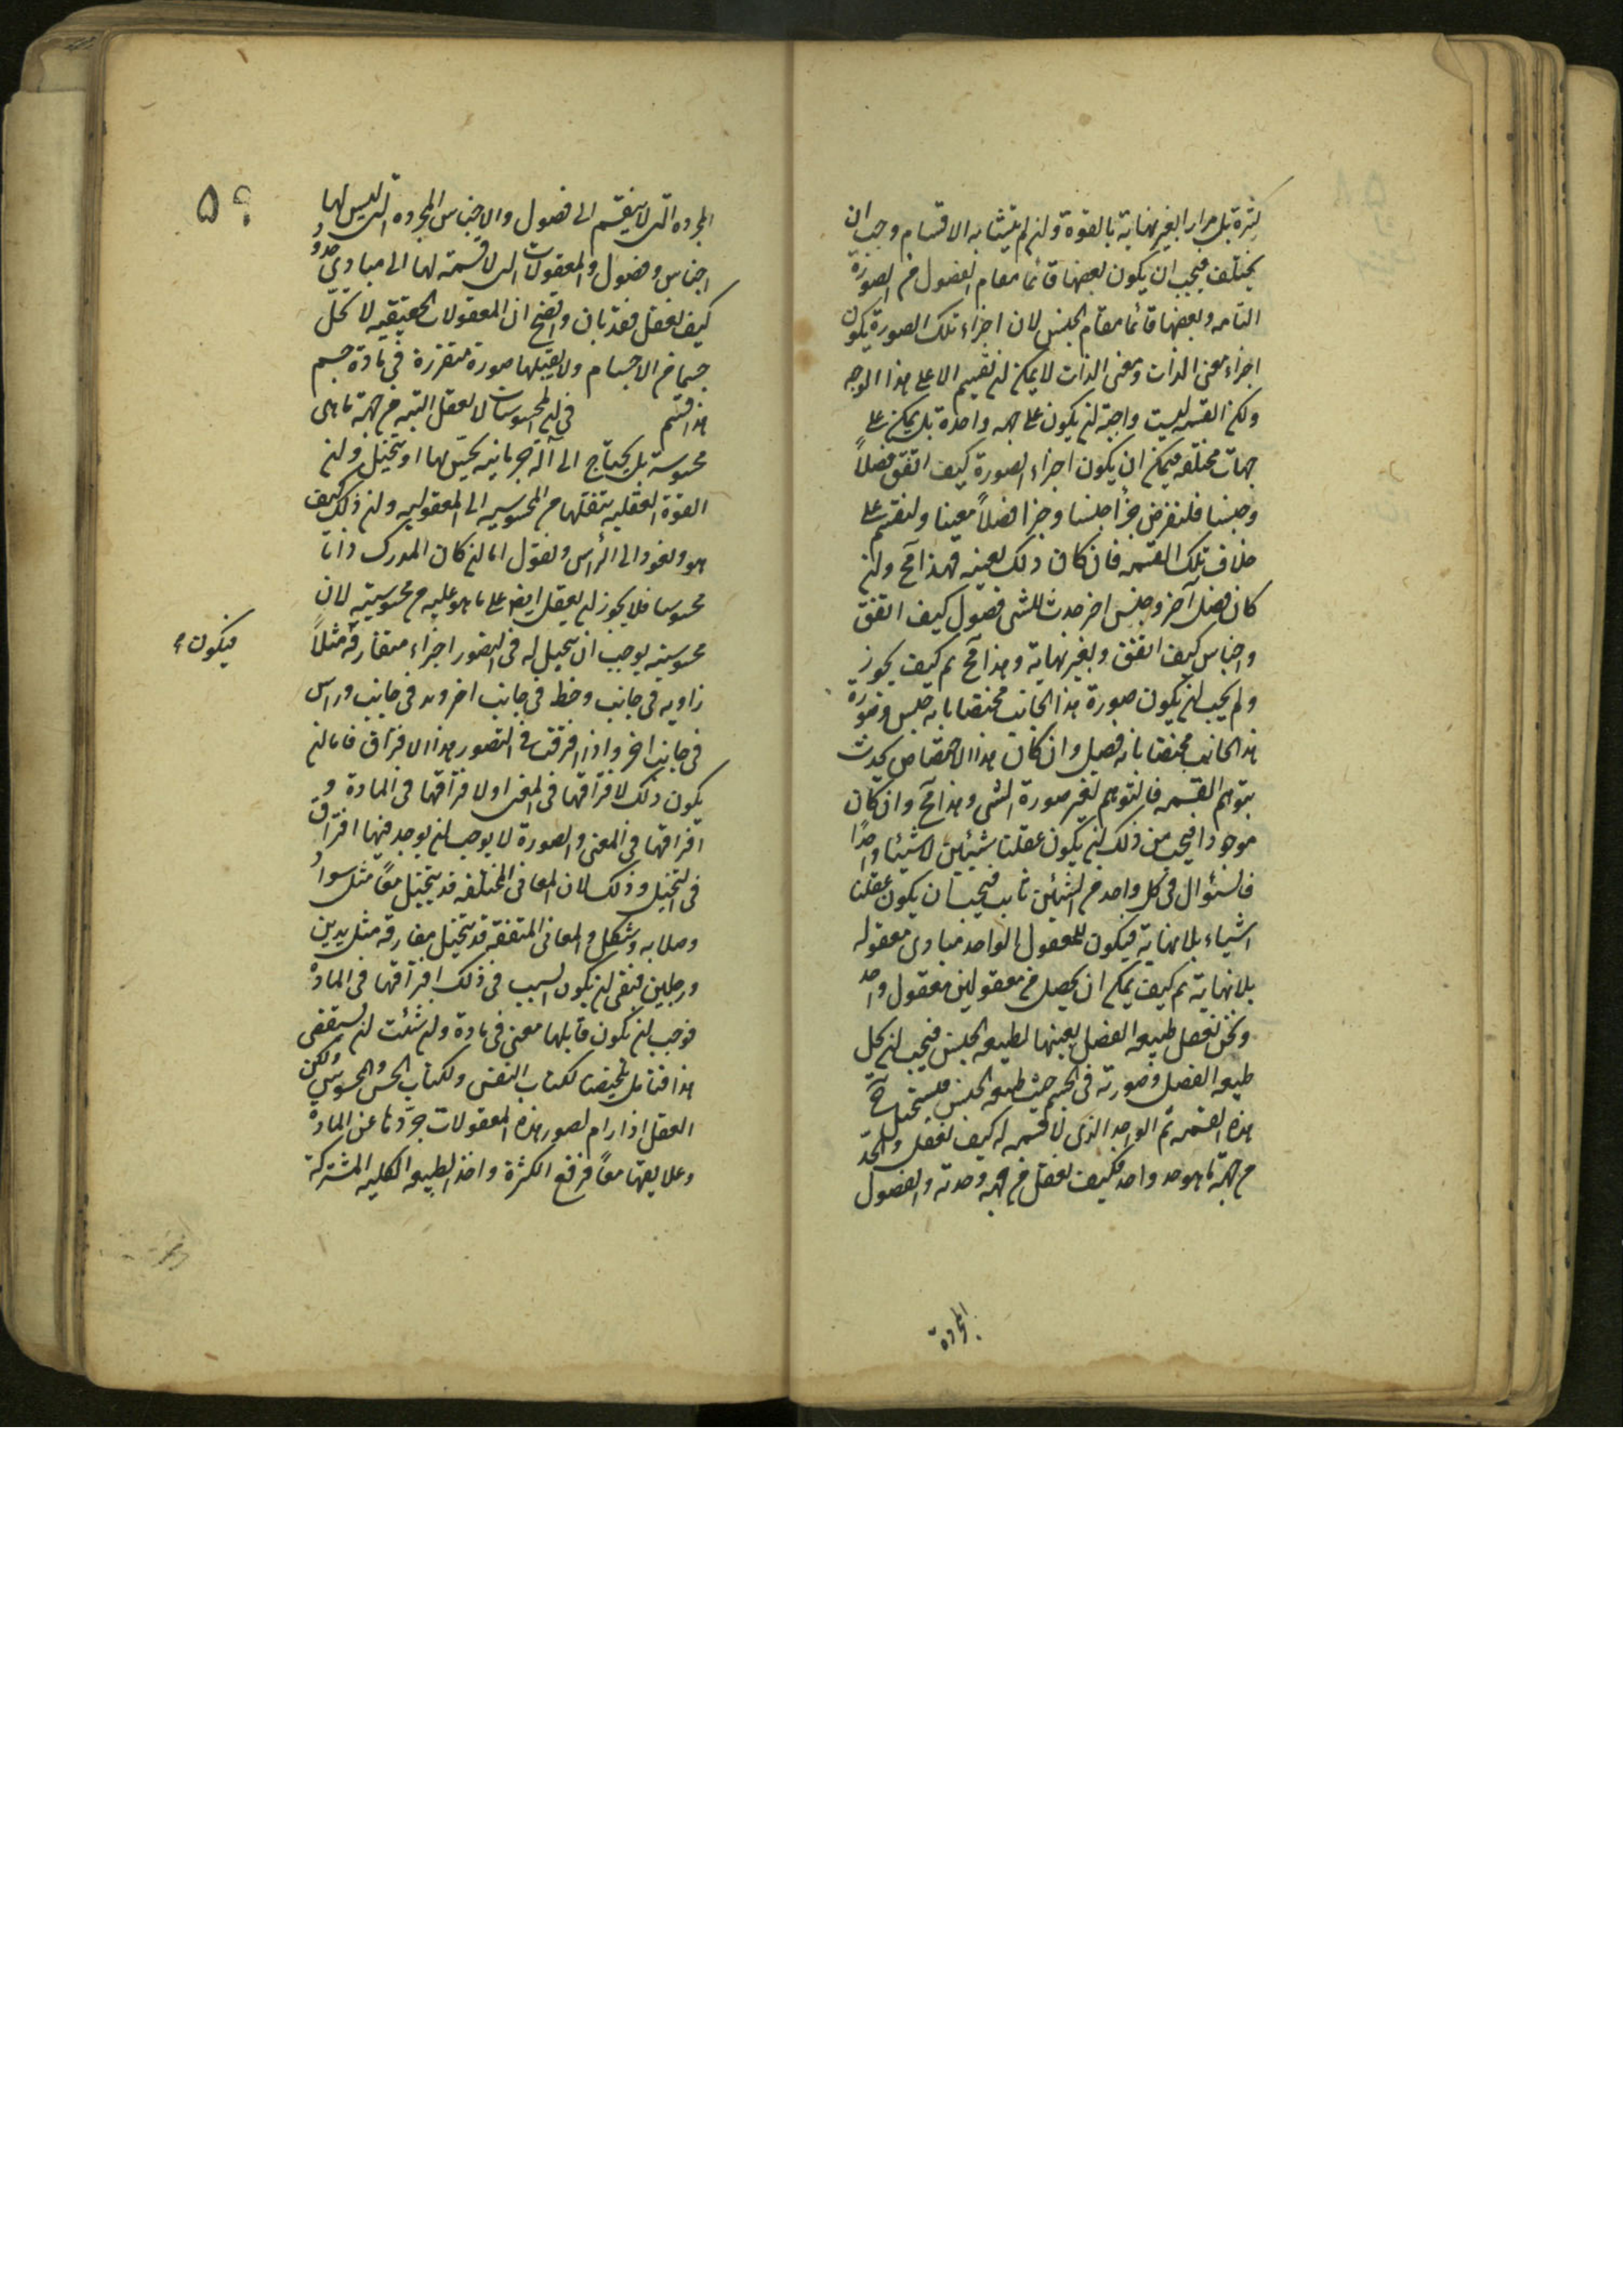 كثرة بل مرارا بغير نهاية بالقوة وان لم يتشابه الاقسام وجب ان
يختلف فيجب ان يكون بعضها قائما مقام الفصول من الصورة
التامه وبعضها قائما مقام الجنس لان اجزاء تلك الصورة يكون
اجزاء معنى الذات ومعنى الذات لا يمكن ان تقسم الا على هذا الوجه
ولكن القسمه ليست واجبة ان يكون على جهه واحدة بل يمكن على
جهات مختلفه فيمكن ان يكون اجزاء الصورة كيف اتفق فصلاً
وجنسا فلنفرض جزأ جنسا وجزأ فصلاً معينا ولنقسم على
خلاف تلك القسمه فان كان ذلك بعينه فهذا مح وان
كان فصل آخر وجنس اخر حدث للشى فصول كيف اتفق
واجناس كيف اتفق وبغير نهاية وهذا مح ثم كيف يجوز
ولم يجب ان يكون صورة هذا الجانب مختصا بانه جنس وصورة
هذا الجانب مختصا بانه فصل وان كان هذا الاختصاص يحدث
بتوهم القسمه فالتوهم يغير صورة الشى وهذا مح وان كان
موجودا فيجب من ذلك ان يكون عقلنا شيئين لا شيئا واحدًا
فالسؤال فى كل واحد من الشيئين ثابت فيجب ان يكون عقلنا
اشياء بلا نهاية فيكون للمعقول الواحد مبادى معقوله
بلا نهاية ثم كيف يمكن ان يحصل من معقولين معقول واحد
ونحن نعقل طبيعه الفصل بعينها لطبيعه الجنس فيجب ان يحل
طبيعه الفصل وصورته فى الجسم حيث طبيعه الجنس فيستحيل مح
هذه القسمه ثم الواحد الذى لا قسمه له كيف تعقل والحدّ
من جهة ما هو حد واحد فكيف يعقل من جهه وحدته والفصول
المجردة
المجرده التى لا ينقسم الى فصول والاجناس المجرده التى ليس لها
اجناس وفصول والمعقولات التى لا قسمة لها الى مبادى حدود
كيف يعقل فقد بان واتضح ان المعقولات الحقيقيه لا تحلّ
جسما من الاجسام ولا يقبلها صورة متقررة فى مادة جسم
هذا قسم فى ان المحسوسات لا يعقل البته من جهة ما هى
محسوسة بل يحتاج الى آلة جرمانيه يحسّ لها او يتخيل وان
القوة العقليه ينقلها من المحسوسيه الى المعقوليه وان ذلك كيف
هو ونعود الى الرأس ونقول اما ان كان المدرك ذاتا
محسوسا فلا يجوز ان يعقل ايضا على ما هو عليه من محسوسيته لان
محسوسيته يوجب ان يتخيل له فى التصور اجزاء متفارقة مثلاً
فيكون
زاويه فى جانب وخط فى جانب اخر ويد فى جانب وراس
فى جانب اخر واذا افترقت فى التصور هذا الافتراق فاما ان
يكون ذلك لافتراقها فى المعنى او لافتراقها فى المادة و
افتراقها فى المعنى والصورة لا يوجب ان يوجد فيها افتراق
فى التخيل وذلك لان المعانى المختلفه قد يتخيل معًا مثل سواد
وصلابه وشكل والمعانى المتفقه قد يتخيل مفارقه مثل يدين
ورجلين فبقى ان يكون السبب فى ذلك افتراقها فى المادة
فوجب ان يكون قابلها معنى فى مادة وان شئت ان تستقصى
هذا فتامل تلخيصنا لكتاب النفس ولكتاب الحس والمحسوس ولكن
العقل اذا رام تصور هذه المعقولات جرّدها عن المادة
وعلايقها معًا فرفع الكثرة واخذ الطبيعه الكليه المشتركة